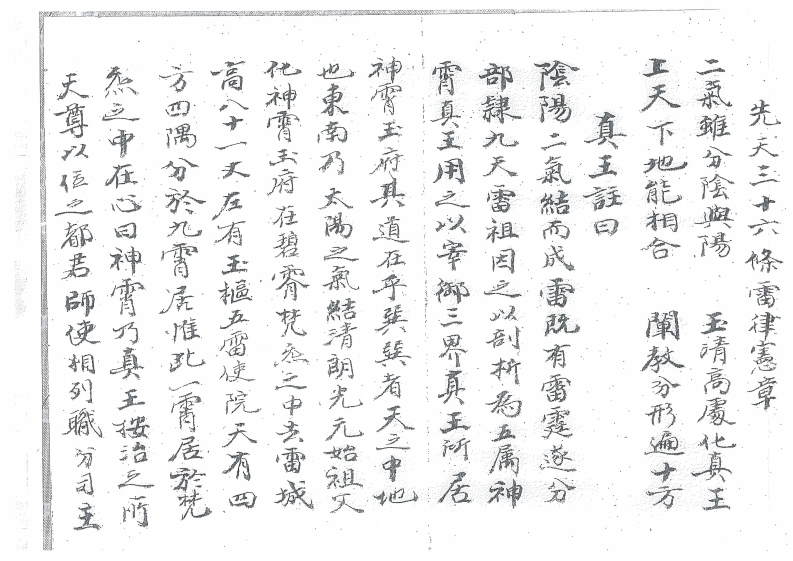 先天三十六條雷律憲章
二氣雖分陰與陽 玉清高處化真王
上天下地能相合 闡教分形遍十方
真王註曰
陰陽二氣結而成雷既有雷霆遂分
部隸九天雷祖因之以剖析為五属神
霄真王用之以宰御三界真王所居
神霄玉府其道在乎巽巽者天之中地
也東南乃太陽之氣結清朗光元始祖父
化神霄玉府在碧霄梵炁之中去雷城
高八十一丈左有玉樞五雷使院天有四
方四隅分於九霄居惟此一霄居於梵
炁之中在心曰神霄乃真王按治之所
天尊以位之都君師使相列職分司主